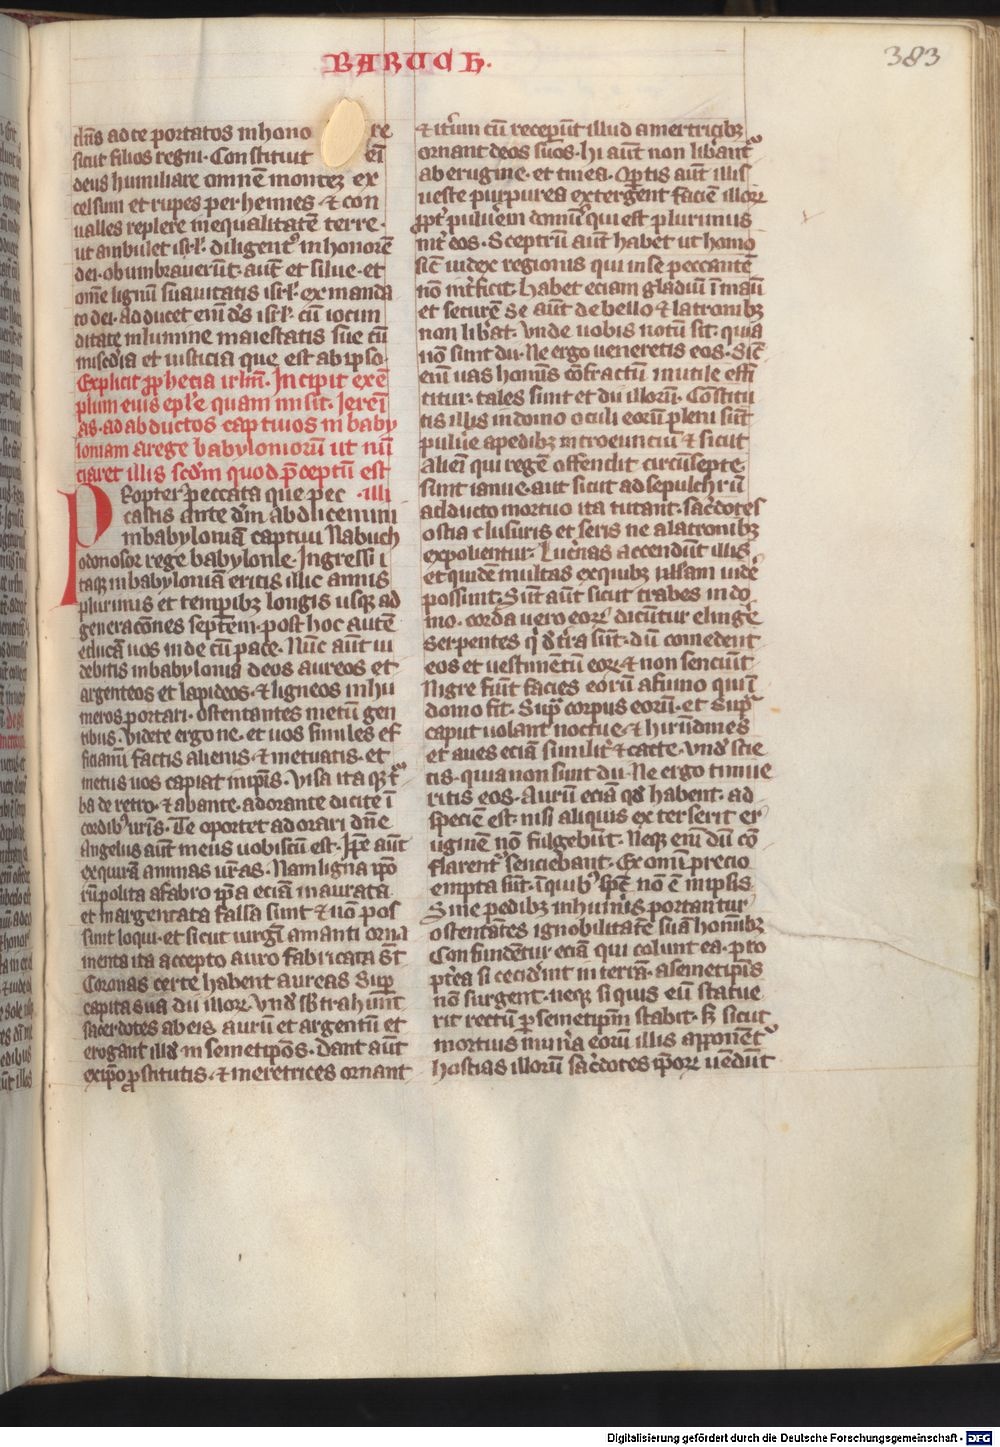 BARUCH.
383
dn̄s ad te portatos in hono re
sicut filios regni. Constituit eī
deus humiliare omnē montez ex
celsum et rupes perhennes ⁊ con
ualles replere in equalitatē terre.
ut ambulet isrl̄. diligent᷒ in honorē
dei. obumbrauer̄ut. aut̄ et silue. et
om̄e lignū suauitatis isrl̄. ex manda
to dei. adducet eni᷒ dn̄s isrl̄. cū iocun
ditate in lumine maiestatis sue cū
miscd̄ia et iusticia que est ab ip̄so.
Explicit ꝓphecia irl̄m. Incipit exē
plum euis epl̄e quam misit. Ierem̄i
as. ad abductos captiuos in baby
loniam a rege babylonioruū ut nū
ciaret illis scd̄m quod p̄ceptū est
PRopter peccata que pec .illi
castis ante dm̄ abducemini
in babyloniā captiui Nabuch
odonosor rege babylonie. Ingressi i
taqꝫ in babyloniā eritis illic annis
plurimis et tempibꝫ longis usqꝫ ad
generacōnes septem. post hoc autē
educā uos inde cū pace. Nūc aūt ui
debitis in babylonia deos aureos et
argenteos et lapideos. ⁊ ligneos in hu
meros portari. ostentantes metū gen
tibus. Videte ergo ne. et uos similes ef
ficiami factis alienis. ⁊ metuatis. et
metus uos capiat in ip̄is. Visa itaqꝫ t᷒
ba de retro. ⁊ abante. adorante dicite ī
cordib᷒ ur̄is. Te oportet adorari dn̄e
Angelus aūt meus uobiscū est. Ip̄e aūt
exquirā animas ur̄as. Nam ligna ip̄o
rū polita a fabro ip̄a eciā inaurata.
et inargentata falsa sunt ⁊ nō pos
sunt loqui. et sicut uirgī amanti orna
menta ita accepto auro fabricata sūt
Coronas certe habent aureas sup̄
capita sua dii illoꝝ. Vnd̄ sb̄trahūnt
sacerdotes ab eis aurū et argentū et
erogant illd̄ in semetip̄os. Dant aūt
ex ip̄o ꝓstitutis. ⁊ meretrices ornant
⁊ it̄um cū recep̄unt illud a meretricibꝫ
ornant deos suōs. hi aūt non lib̄ant᷒
ab erugine. et tinea. Op̄tis aūt illis
ueste purpurea extergent faciē illoꝝ
ꝓpt̄ puluēm domus qui est plurimus
int̄ eos. Sceptrū aūt habet ut homo
sic̄ iudex regionis qui in se peccantē
nō int̄ficit. habet eciam gladiū ī manū
et securē se aūt de bello ⁊ latronibꝫ
non lib̄at. Vnde uobis notū sit. quia
nō sunt dii. Ne ergo ueneretis eos. Sic̄
eni᷒ uas hominis cōfractū inutile effi
titur. tales sunt et dii illorū. Cōstitu
tis illis in domo oculi eorū pleni sūt
puluere a pedibꝫ introeunciū ⁊ sicut
aliem̄ qui regē offendit circūsepte.
sunt ianue. aut sicut ad sepulchrū
adducto mortuo ita tutant. sac̄dotes
ostia clusuris et seris ne a latronibꝫ
expolientur. Luc̄nas accendūt illis
et quidē multas ex quibꝫ ullam uidē
possunt. Sūt aūt sicut trabes in do
mo. corda uero eoꝝ dicūtur elingē
serpentes q̄ d̄ t̄ra sūt. dū comedent
eos et uestimētū eoꝝ ⁊ non senciūt
Nigre fiūt facies eorū a fumo qui ī
domo fit. Sup̄ corpus eorū. et sup̄
caput uolant noctue. ⁊ hirūdines
et aues eciā simil᷒r ⁊ catte. Vnd̄ scie
tis. quia non sunt dii. Ne ergo timue
ritis eos. Aurū eciā qd̄ habent. ad
speciē est. nisi aliquis exterserit er
uginem nō fulgebūt. Neqꝫ eni᷒ dū cō
flarent᷒ senciebant. Ex om̄i precio
empta sūt. ī quib᷒ sp̄c nō ē in ip̄sis.
Sine pedibꝫ in humeris portantur
ostentātes ignobilitatē suā hom̄ibꝫ
Confundētur eciā qui colunt ea. p̄to
pt̄ea si cecid̄int in terrā. a semetip̄is
nō surgent. neqꝫ si quis eū statue
rit rectū p̄ semetip̄m stabit. sꝫ sicut
mortuis munera eorū illis apponēt᷒
hostias illorū sac̄dotes ip̄oꝝ uēdūt
Digitalisierung gefördert durch die Deutsche Forschungsgemeinschaft - DFG